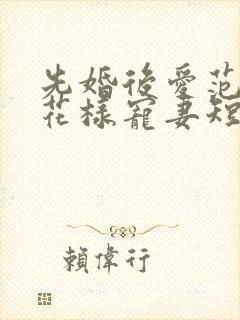 先婚後愛范
花樣寵妻短
賴偉行